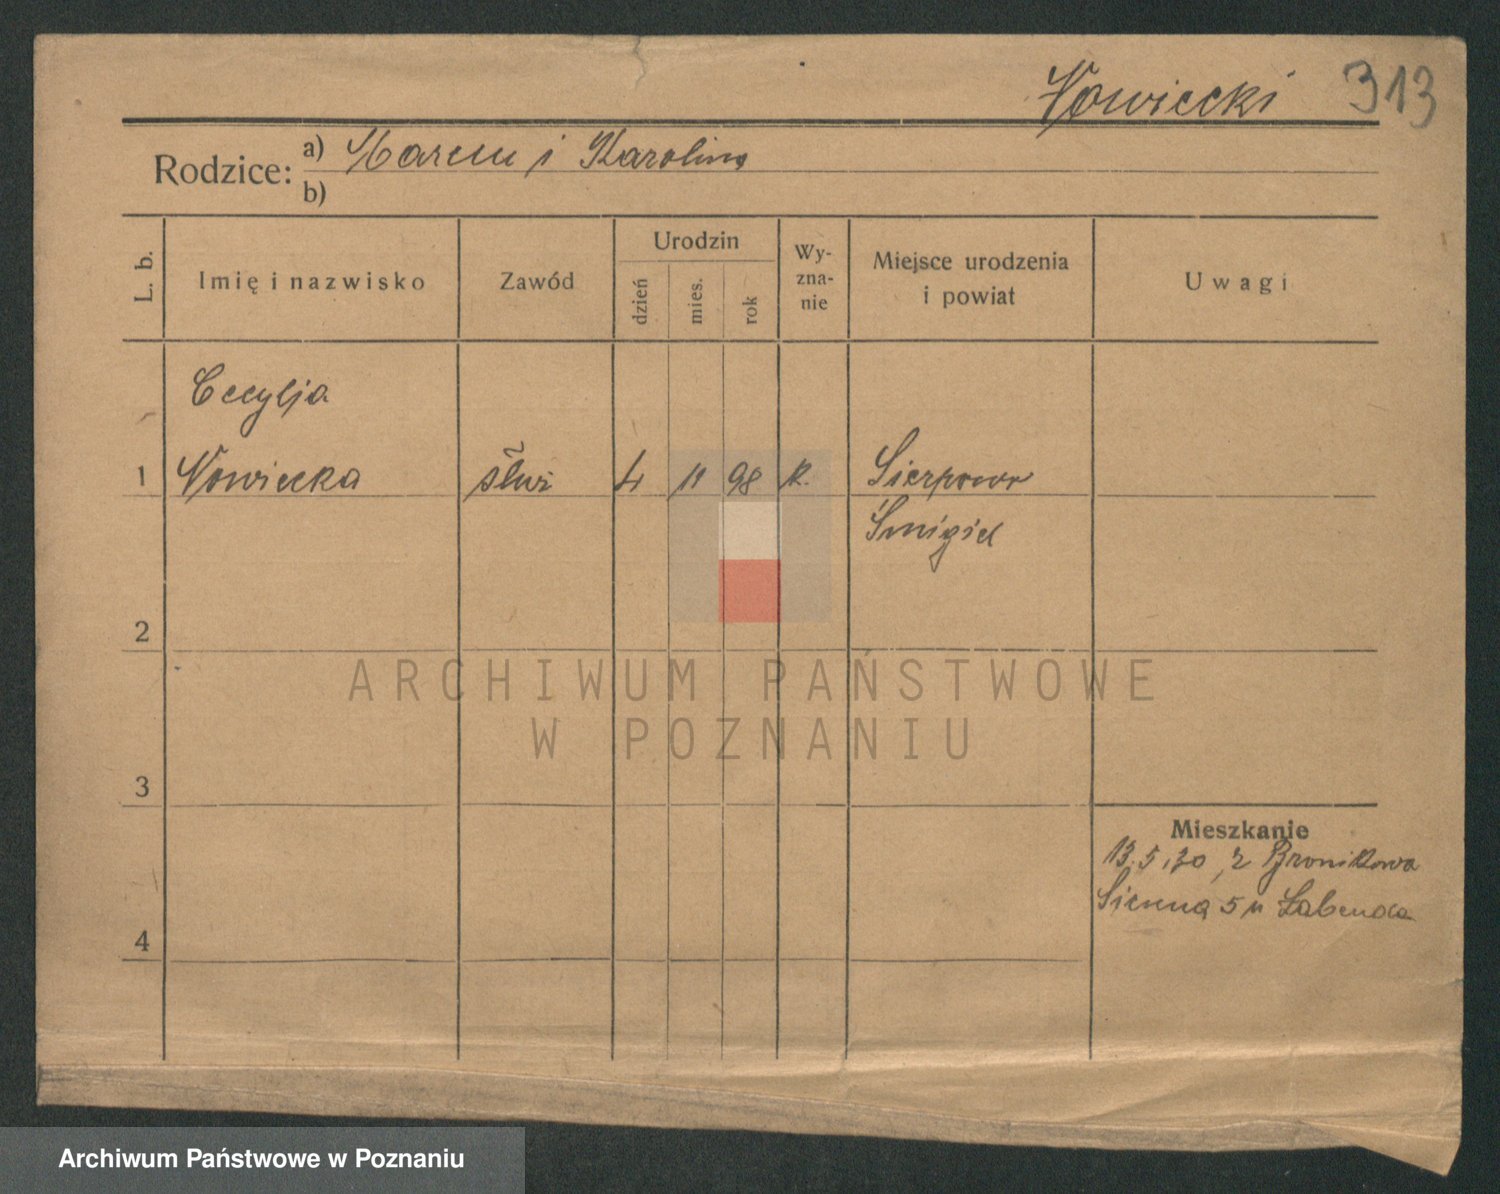 Nowiecki 313
Rodzice: a) Marcin i Karolina
b)
L. b.
Imię i nazwisko
Zawód
Urodzin
dzień
mies.
rok
Wy-
zna-
nie
Miejsce urodzenia
i powiat
Uwagi
Cecylja
1 Nowiecka służ 4 11 98 k. Sierpowo
Śmigiel
2
3
4
Mieszkanie
13.5.30, z Bronikowa
Sienna 5 u
ARCHIWUM PAŃSTWOWE
W POZNANIU
Archiwum Państwowe w Poznaniu